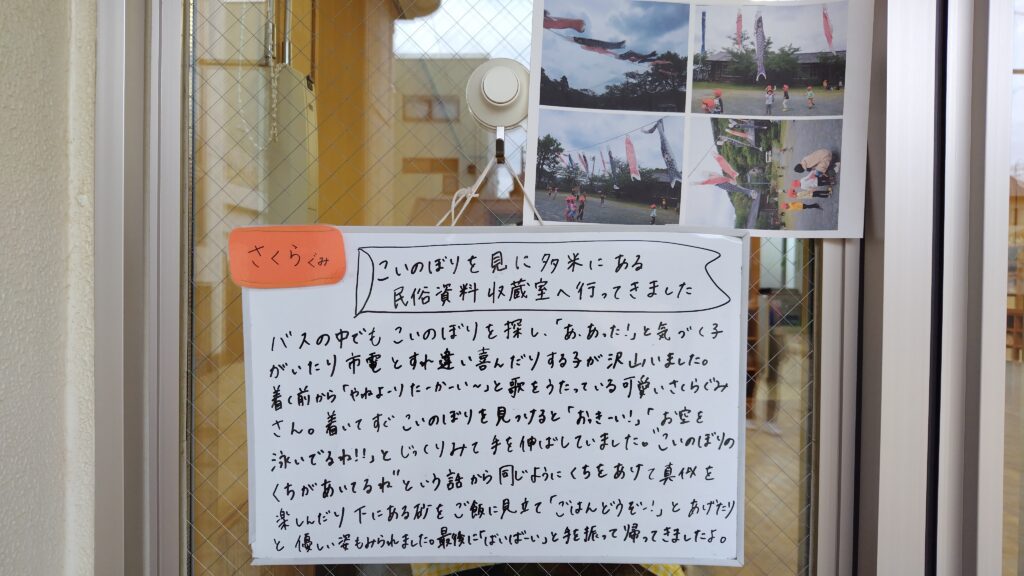 さくらぐみ
こいのぼりを見に多米にある
民俗資料収蔵室へ行ってきました
バスの中でもこいのぼりを探し、「あ、あった!」と気づく子
がいたり市電とすれ違い喜んだりする子が沢山いました。
着く前から「やねよーりたーかーい〜」と歌をうたっている可愛いさくらぐみ
さん。着いてすぐこいのぼりを見つけると「おっきーい!」「お空を
泳いでるね!!」とじっくりみて手を伸ばしていました。"こいのぼりの
くちがあいてるね"という話から同じようにくちをあけて真似を
楽しんだり下にある砂をご飯に見立て「ごはんどうぞー!」とあげたり
と優しい姿もみられました。最後に「ばいばーい」と手を振って帰ってきましたよ。